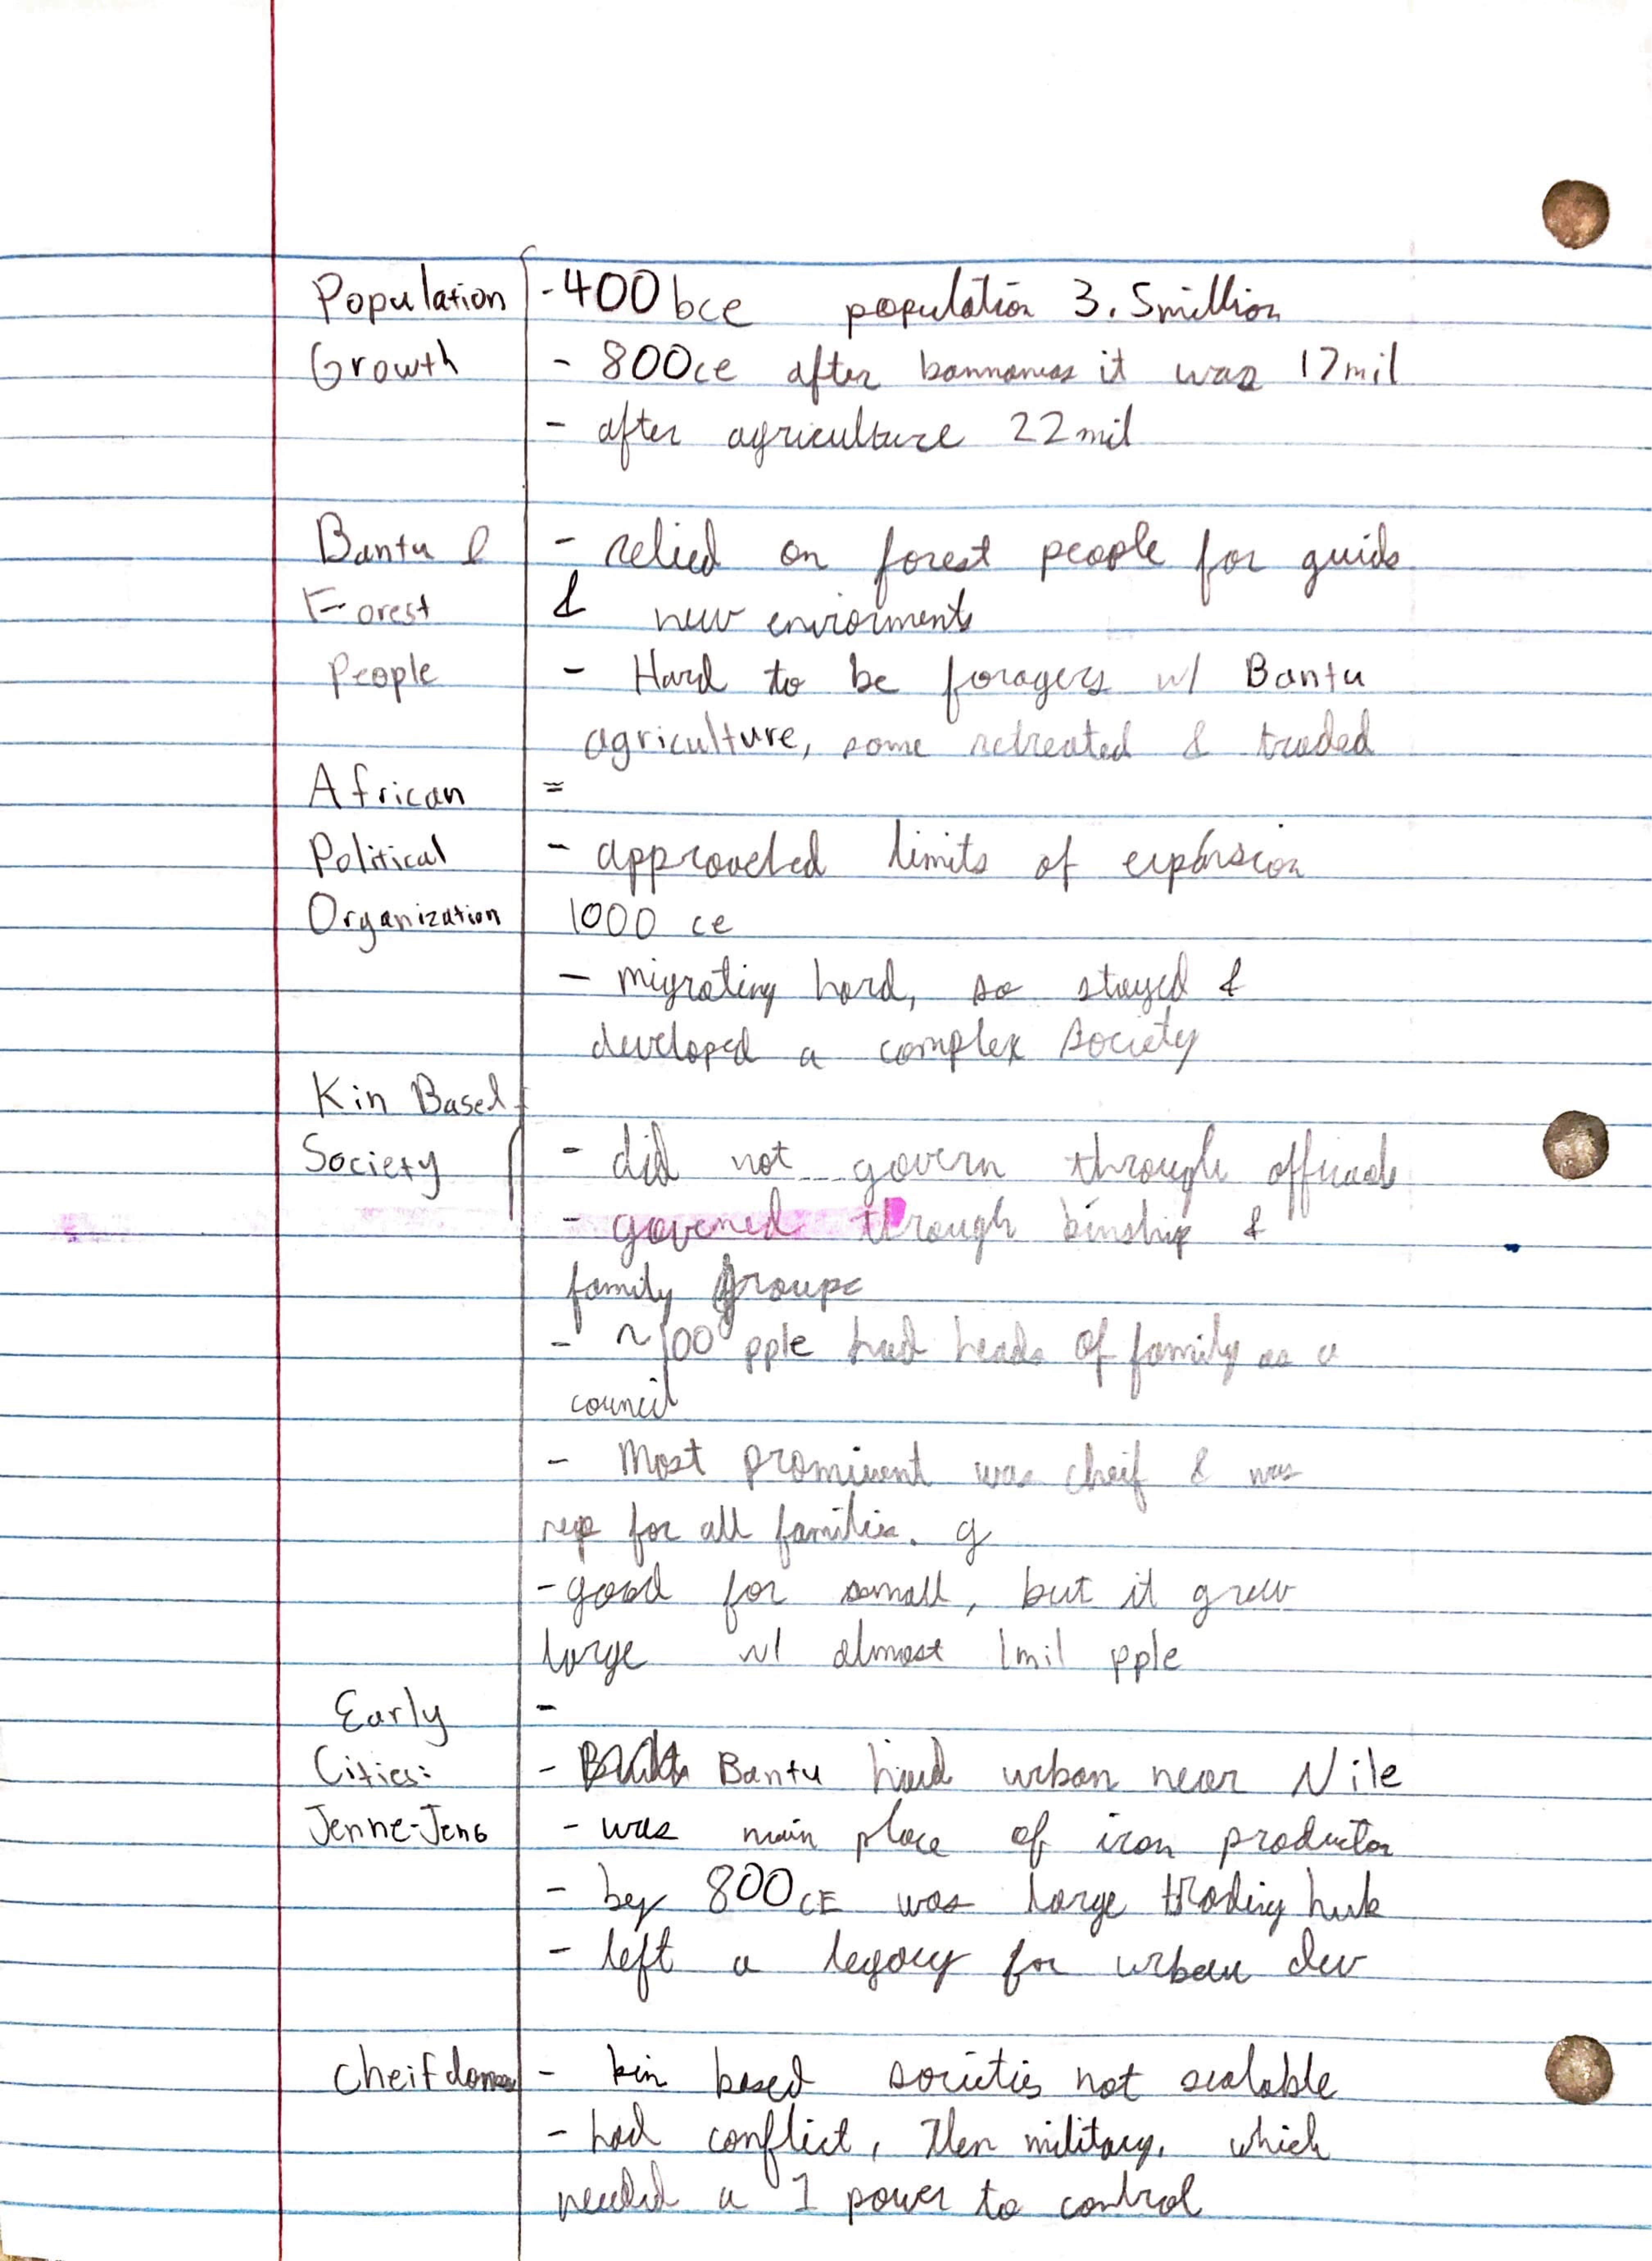 Population - 400 bce population 3.5 million
Growth - 800ce after bannanas it was 17 mil
- after agriculture 22 mil
Bantu & - relied on forest people for guids
Forest & new enviorments
People - Hard to be foragers w/ Bantu
agriculture, some retreated & traded
African =
Political - approached limits of expansion
Organization 1000 ce
- migrating hard, so stayed &
developed a complex society
Kin Based
Society - did not govern through officials
- governed through kinship &
family groups
- ~100 pple had heads of family as a
council
- Most prominent was cheif & was
rep for all families. g
- good for small, but it grew
large w/ almost 1mil pple
Early -
Cities: - Bantu had urban near Nile
Jenne-Jeno - was main place of iron production
- by 800 CE was large trading hub
- left a legacy for urban dev
Cheifdoms - kin based societies not scalable
- had conflict, then military, which
needed a 1 power to control